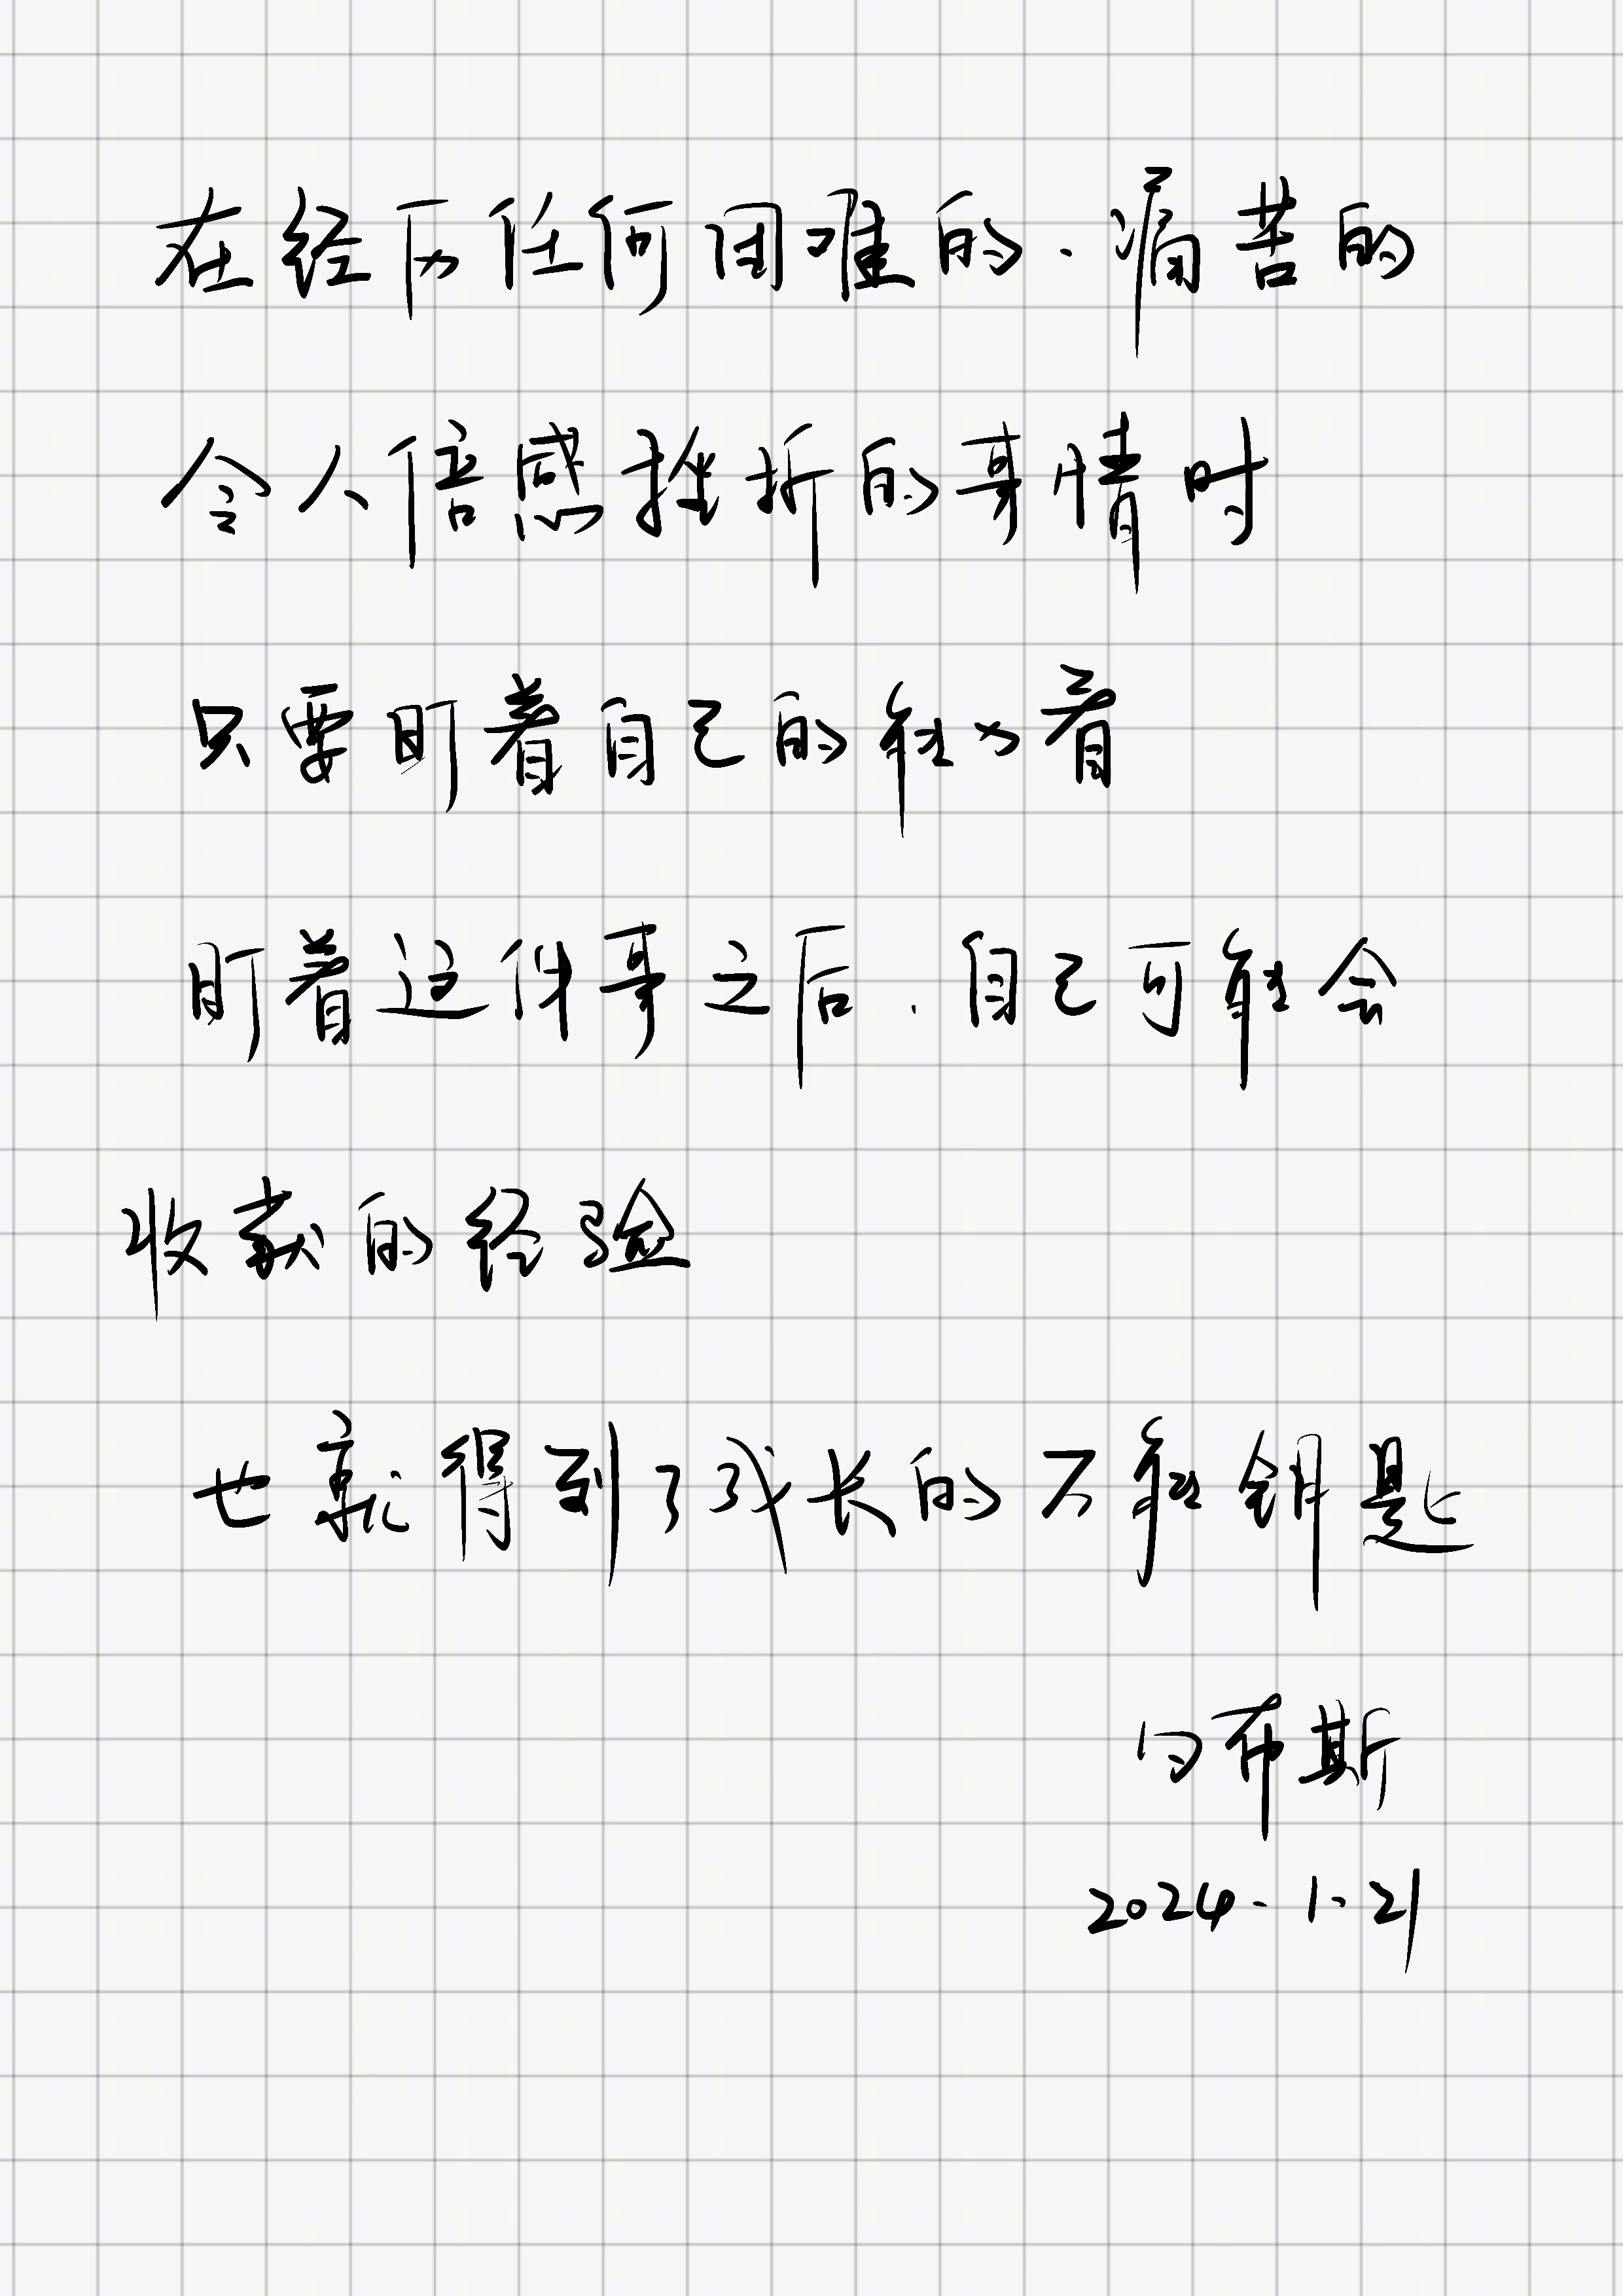 在经历任何困难的、痛苦的
令人倍感挫折的事情时
只要盯着自己的能力看
盯着这件事之后、自己可能会
收获的经验
也就得到了成长的万能钥匙
白布斯
2024.1.21